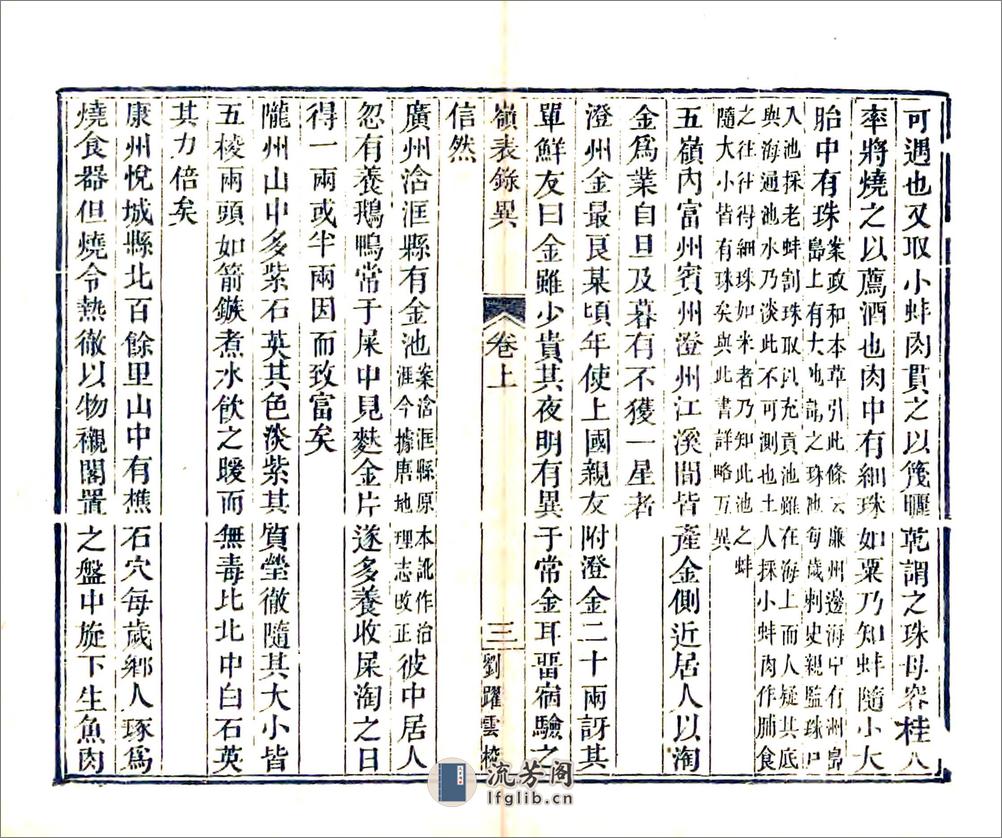 可遇也又取小蚌肉貫之以篾曬乾謂之珠母容桂人
率將燒之以薦酒也肉中有細珠如粟乃知蚌隨小大
胎中有珠案政和本草引此條云廉州邊海中有洲島
島上有大池謂之珠池每歲刺史親監珠戶
入池採老蚌割珠取以充貢池雖在海上而人疑其底
與海通池水乃淡此不可測也土人採小蚌肉作脯食
之往往得細珠如米者乃知此池之蚌
隨大小皆有珠矣與此書詳略互異
五嶺內富州賓州澄州江溪間皆產金側近居人以淘
金爲業自旦及暮有不獲一星者
澄州金最良某頃年使上國親友附澄金二十兩訝其
單鮮友曰金雖少貴其夜明有異于常金耳畱宿驗之
嶺表錄異 卷上 三 劉躍雲校
信然
廣州浛洭縣有金池案浛洭縣原本訛作治
洭今據唐地理志改正彼中居人
忽有養鵝鴨常于屎中見麩金片遂多養收屎淘之日
得一兩或半兩因而致富矣
隴州山中多紫石英其色淡紫其質瑩徹隨其大小皆
五棱兩頭如箭鏃煮水飮之暖而無毒比北中白石英
其力倍矣
康州悅城縣北百餘里山中有樵石穴每歲鄉人琢爲
燒食器但燒令熱徹以物襯閣置之盤中旋下生魚肉
流芳阁
lfglib.cn